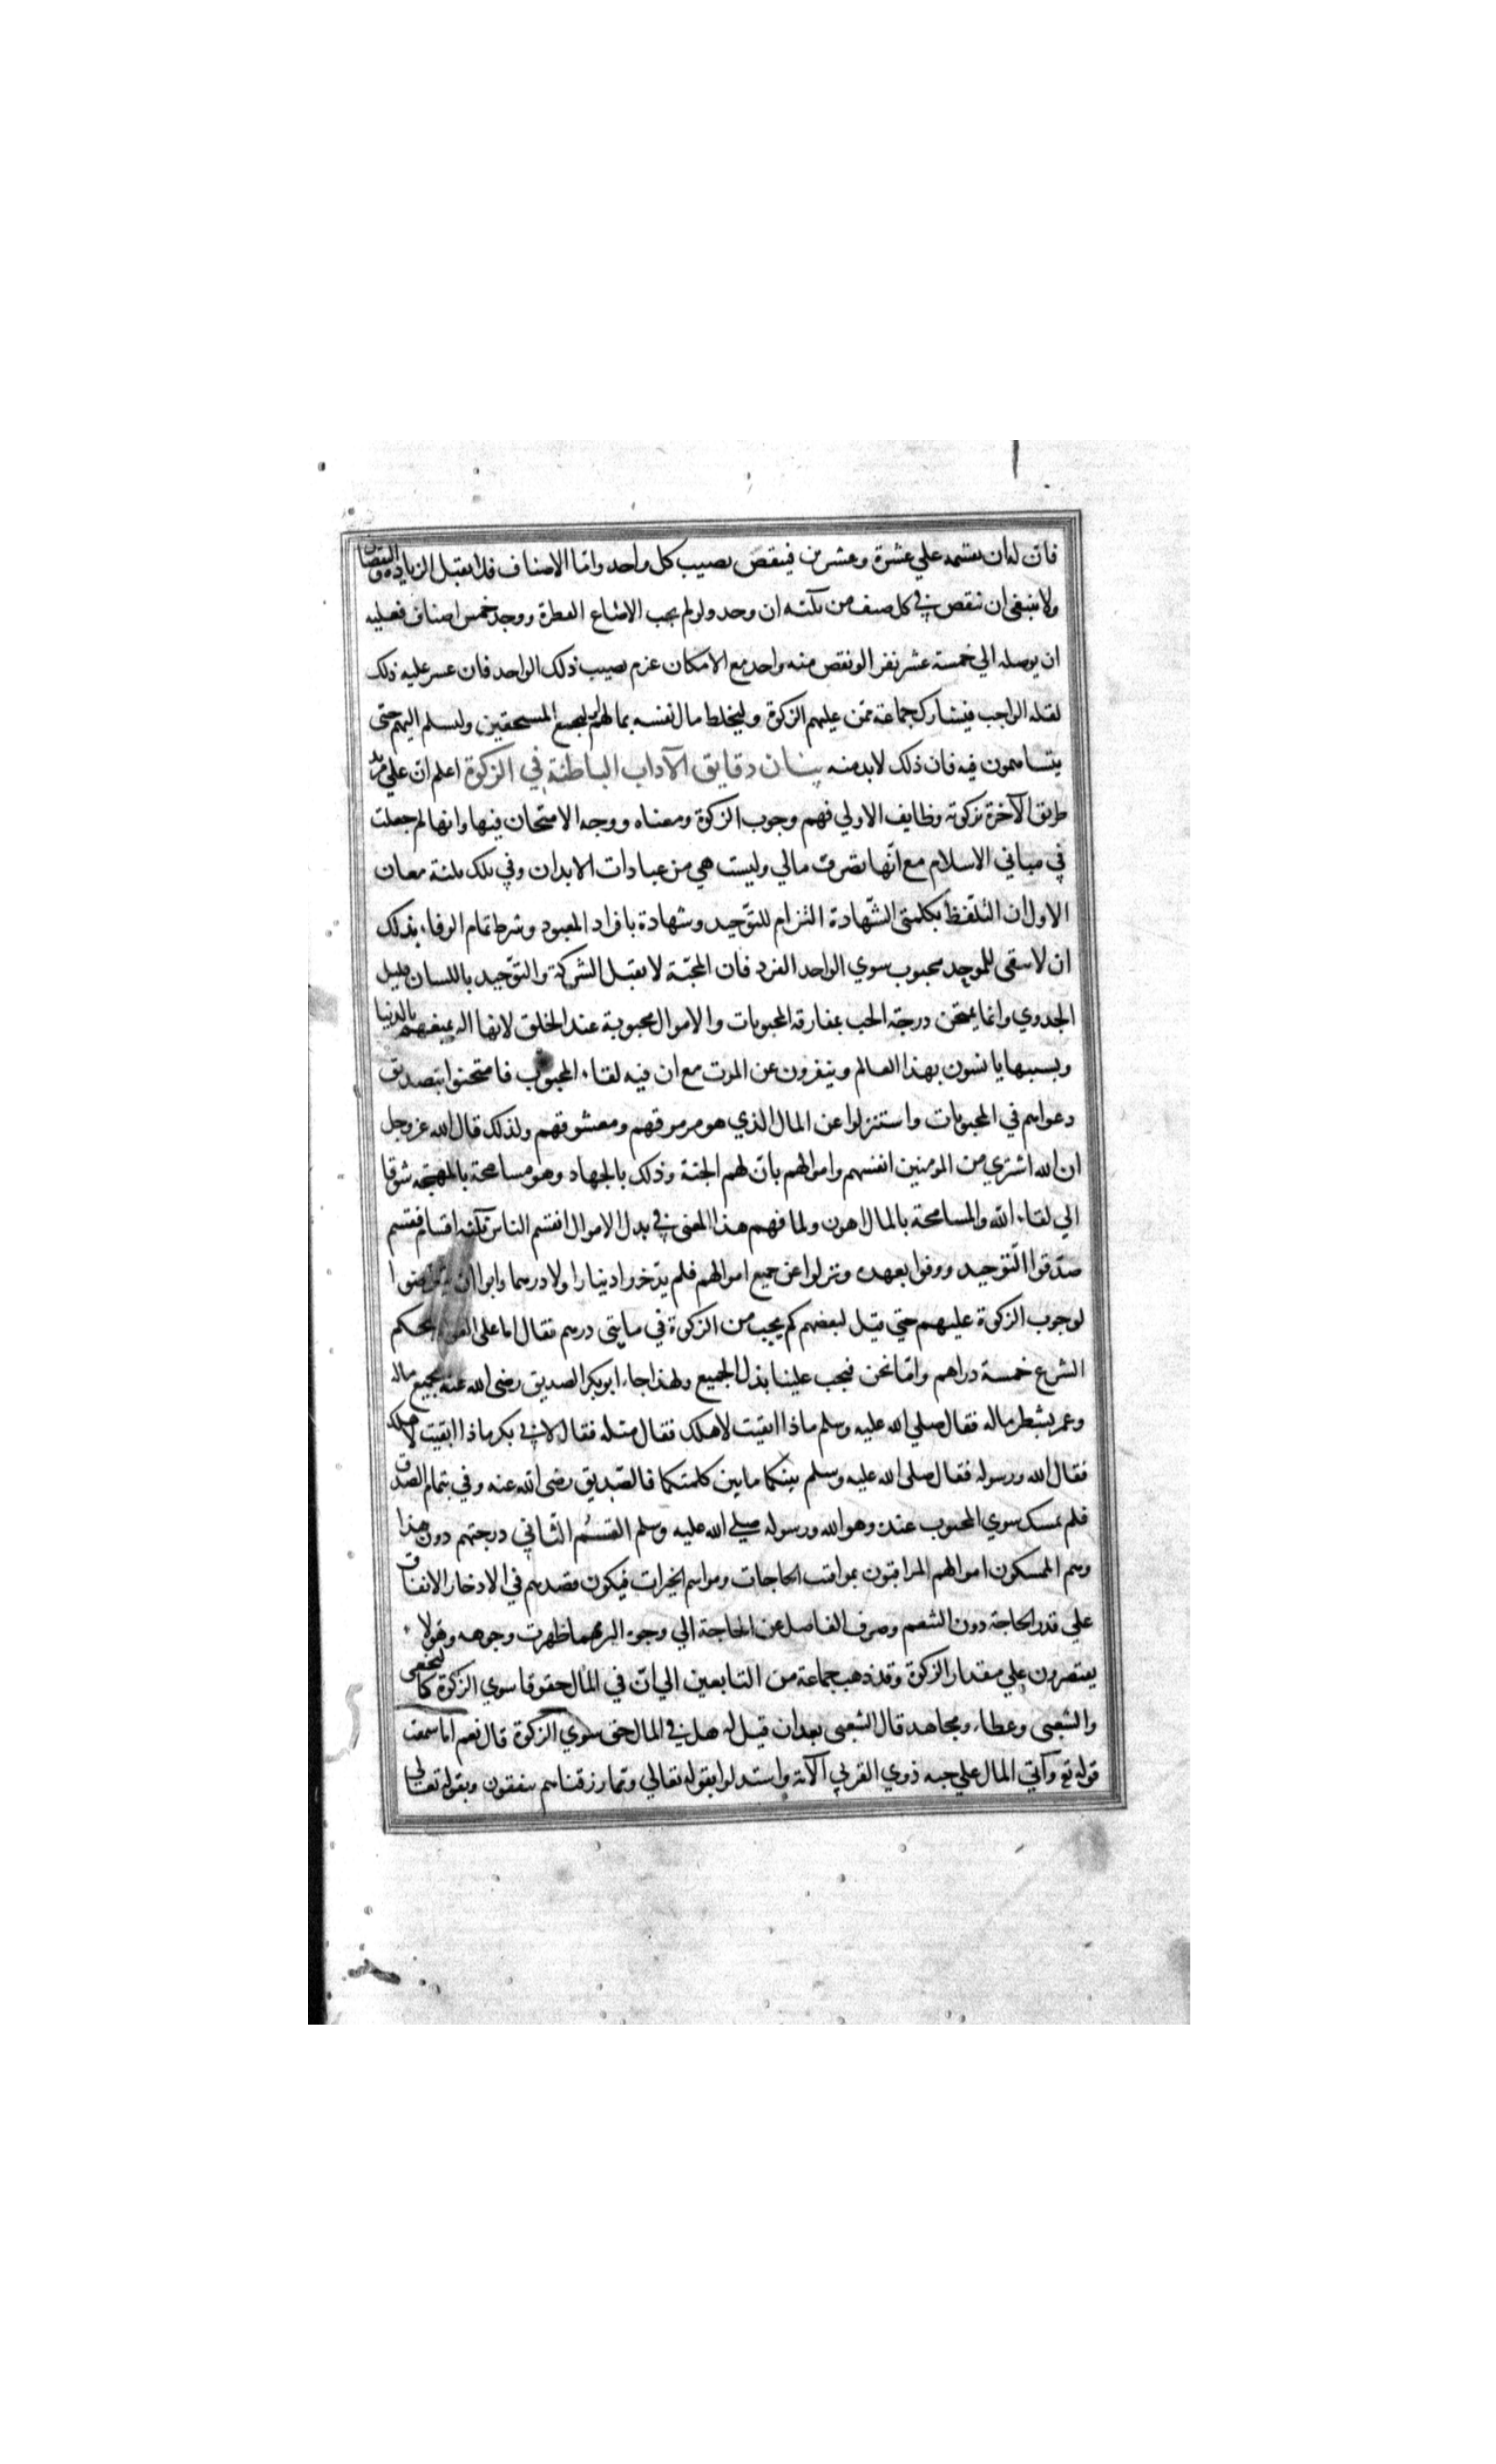 فان له ان يقسمه علي عشرة وعشرين فينقص نصيب كل واحد واما الاصناف فلا يقبل الزيادة والنقصان
ولا ينبغي ان ينقص في كل صنف من ثلثه ان وجد ولو لم يجب الا صاع الفطرة ووجد خمس اصناف فعليه
ان يوصله الي خمسة عشر نفرا لو نقص منه واحد مع الامكان غرم نصيب ذلك الواحد فان عسر عليه ذلك
لقلة الواجب فيشارك جماعة ممن عليهم الزكوة وليخلط مال نفسه بمالهم ليجمع المستحقين وليسلم اليهم حتي
يتساهمون فيه فان ذلك لابد منه بيان دقايق الآداب الباطنة في الزكوة اعلم ان علي مريد
طريق الآخرة بزكوته وظايف الاولي فهم وجوب الزكوة ومعناه ووجه الامتحان فيها وانها لم جعلت
في مباني الاسلام مع انها تصرف مالي وليست هي من عبادات الابدان وفي ذلك ثلثة معان
الاول ان التلفظ بكلمتي الشهادة التزام للتوحيد وشهادة بافراد المعبود وشرط تمام الوفاء بذلك
ان لا يبقي للموحد محبوب سوي الواحد الفرد فان المحبة لا يقبل الشركة والتوحيد باللسان قليل
الجدوي وانما يمتحن درجة الحب بمفارقة المحبوبات والاموال محبوبة عند الخلق لانها اله تمتعهم بالدنيا
وبسببها يانسون بهذا العالم وينفرون عن الموت مع ان فيه لقاء المحبوب فامتحنوا بتصديق
دعواهم في المحبوبات واستنزلوا عن المال الذي هو مرموقهم ومعشوقهم ولذلك قال الله عز وجل
ان الله اشتري من المومنين انفسهم واموالهم بان لهم الجنة وذلك بالجهاد وهو مسامحة بالمهجة شوقا
الي لقاء الله والمسامحة بالمال اهون ولما فهم هذا المعني في بدل الاموال افتسم الناس ثلثة اقسام فقسم
صدقوا التوحيد ووفوا بعهده ونزلوا عن جميع اموالهم فلم يدخروا دينارا ولا درهما وابوا ان يتعرضوا
لوجوب الزكوة عليهم حتي قيل لبعضهم كم يجب من الزكوة في مايتي درهم فقال اما علي العوام بحكم
الشرع خمسة دراهم واما نحن فيجب علينا بذل الجميع ولهذا جاء ابوبكر الصديق رضي الله عنه بجميع ماله
وعمر بشطر ماله فقال صلي الله عليه وسلم ماذا ابقيت لاهلك فقال مثله فقال لابي بكر ماذا ابقيت لاهلك
فقال الله ورسوله فقال صلي الله عليه وسلم بينكما ما بين كلمتكما فالصديق رضي الله عنه وفي بتمام الصدق
فلم يمسك سوي المحبوب عنده وهو الله ورسوله صلي الله عليه وسلم القسم الثاني درجتهم دون هذا
وهم الممسكون اموالهم المراقبون بمواقت الحاجات ومواسم الخيرات فيكون قصدهم في الادخار الانفاق
علي قدر الحاجة دون التنعم وصرف الفاضل عن الحاجة الي وجوه البر مهما ظهرت وجوهه وهولاء
يقتصرون علي مقدار الزكوة وقد ذهب جماعة من التابعين الي ان في المال حقوقا سوي الزكوة كالنخعي
والشعبي وعطاء ومجاهد قال الشعبي بعد ان قيل له هل في المال حق سوي الزكوة قال نعم اما سمعت
قوله تع وآتي المال علي حبه ذوي القربي الآية واستدلوا بقوله تعالي ومما رزقناهم ينفقون وبقوله تعالي